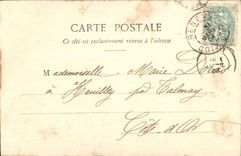 CARTE POSTALE
Ce côté est exclusivement réservé à l'adresse
Mademoiselle Marie
à Heuilley par Talmay
Côte d'Or